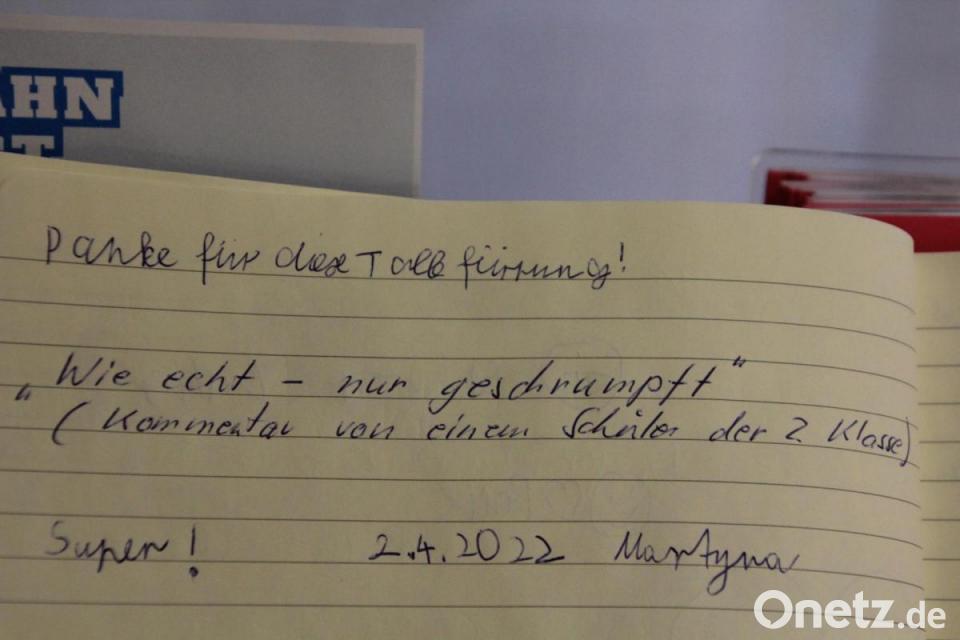 AHN
Danke für diese Tolle fürrung!
„Wie echt – nur geschrumpft"
(Kommentar von einem Schüler der 2 Klasse)
Super! 2.4.2022 Martyna
Onetz.de